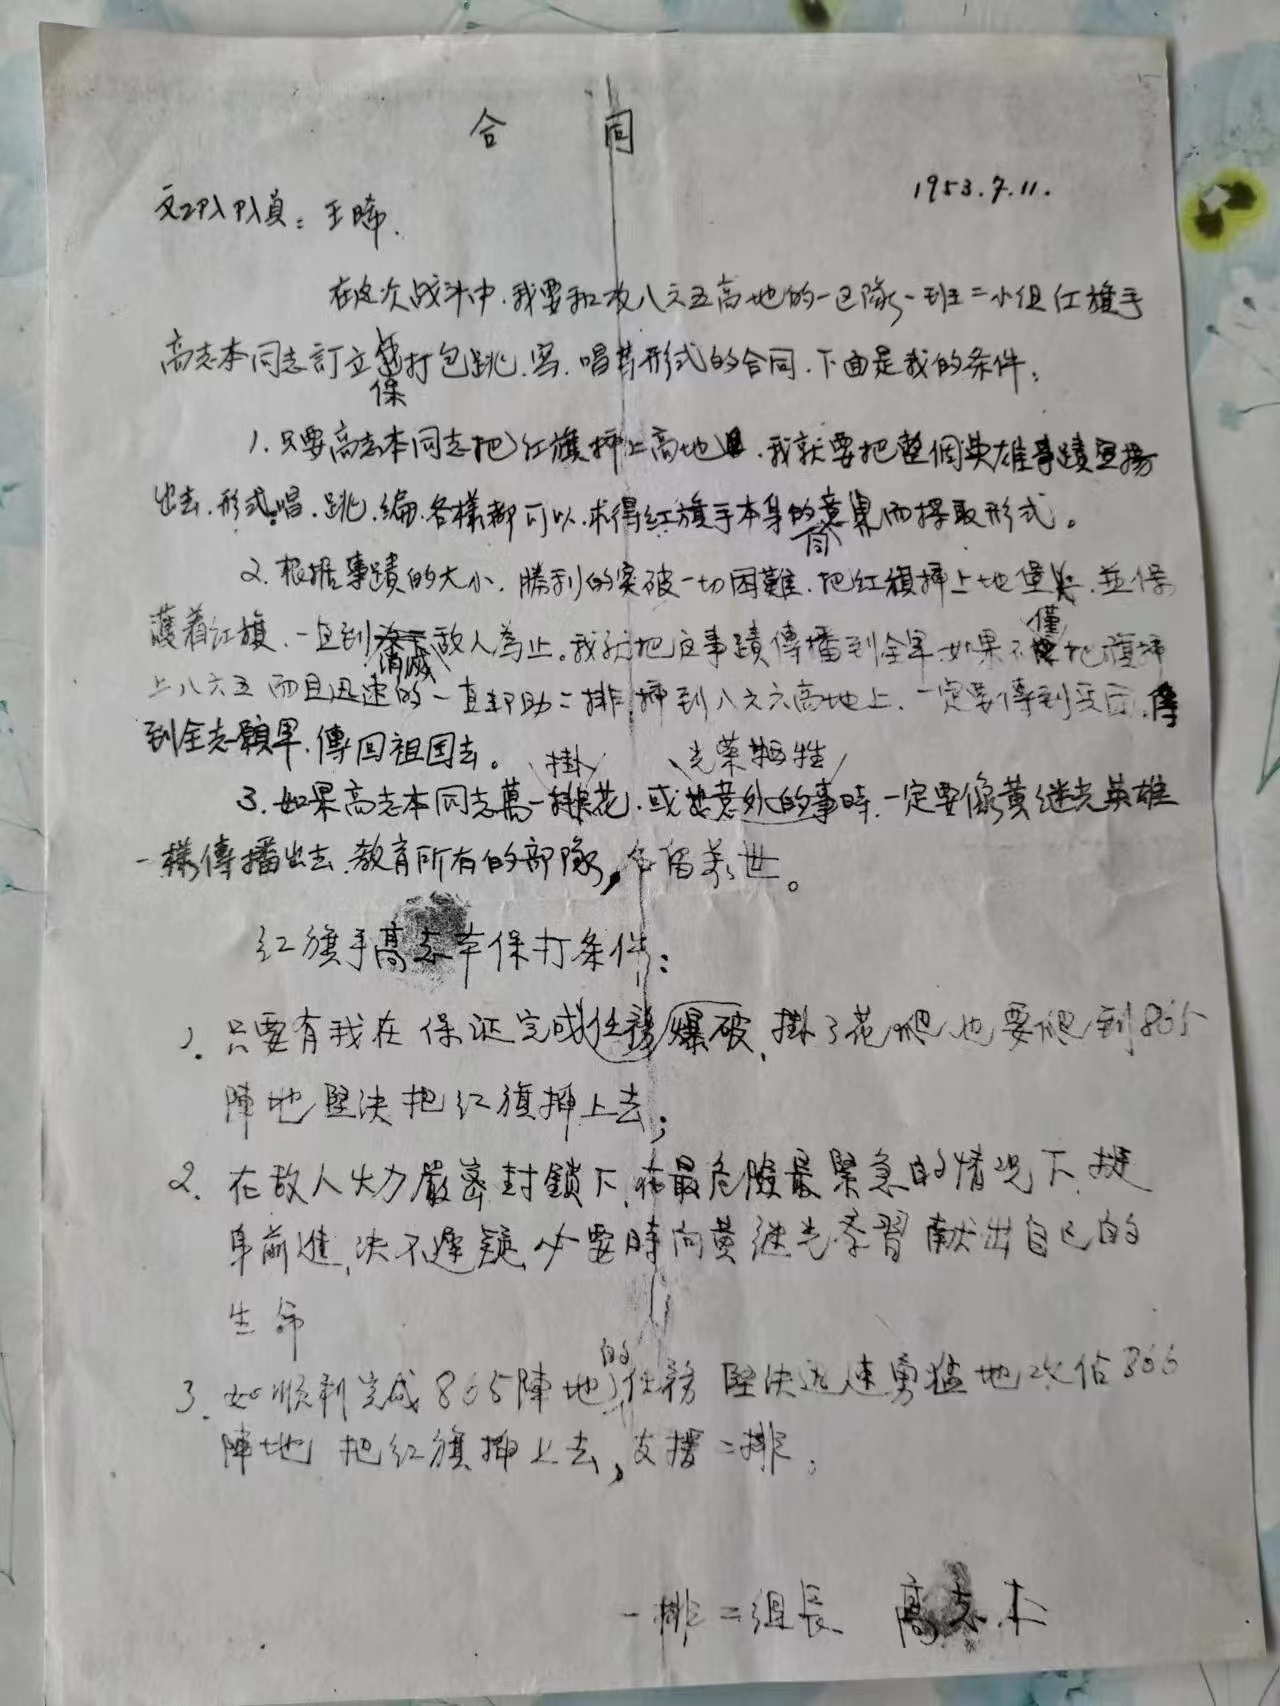 合 同
1953.7.11.
文工队队员：王晞.
在这次战斗中.我要和攻八六五高地的一包隊一班二小组红旗手
高志本同志訂立保打包跳.写.唱等形式的合同.下面是我的条件：
1.只要高志本同志把红旗揷上高地.我就要把整個英雄事蹟宣揚
出去.形式唱.跳.编.各樣都可以.求得红旗手本身的同意而採取形式。
2.根据事蹟的大小.勝利的突破一切困難.把红旗揷上地堡.並保
護着红旗.一直到消滅敌人為止。我就把这事蹟傳播到全军.如果不僅把旗揷
上八六五而且迅速的一直帮助二排揷到八六六高地上.一定要傳到.傳
到全志願軍.傳回祖国去。
3.如果高志本同志萬一掛花.或光荣牺牲時.一定要像黄继光英雄
一樣傳播出去.教育所有的部隊，名留萬世。
红旗手高志本保打条件：
1.只要有我在保证完成爆破任務.掛了花爬也要爬到865
陣地坚决把红旗揷上去；
2.在敌人火力嚴密封鎖下,在最危險最緊急的情况下.挺
身前進,决不遲疑必要時向黄继光学習献出自己的
生命
3.如順利完成865陣地的任務坚决迅速勇猛地攻佔866
陣地把红旗揷上去，支援二排。
一排二组長 高志本